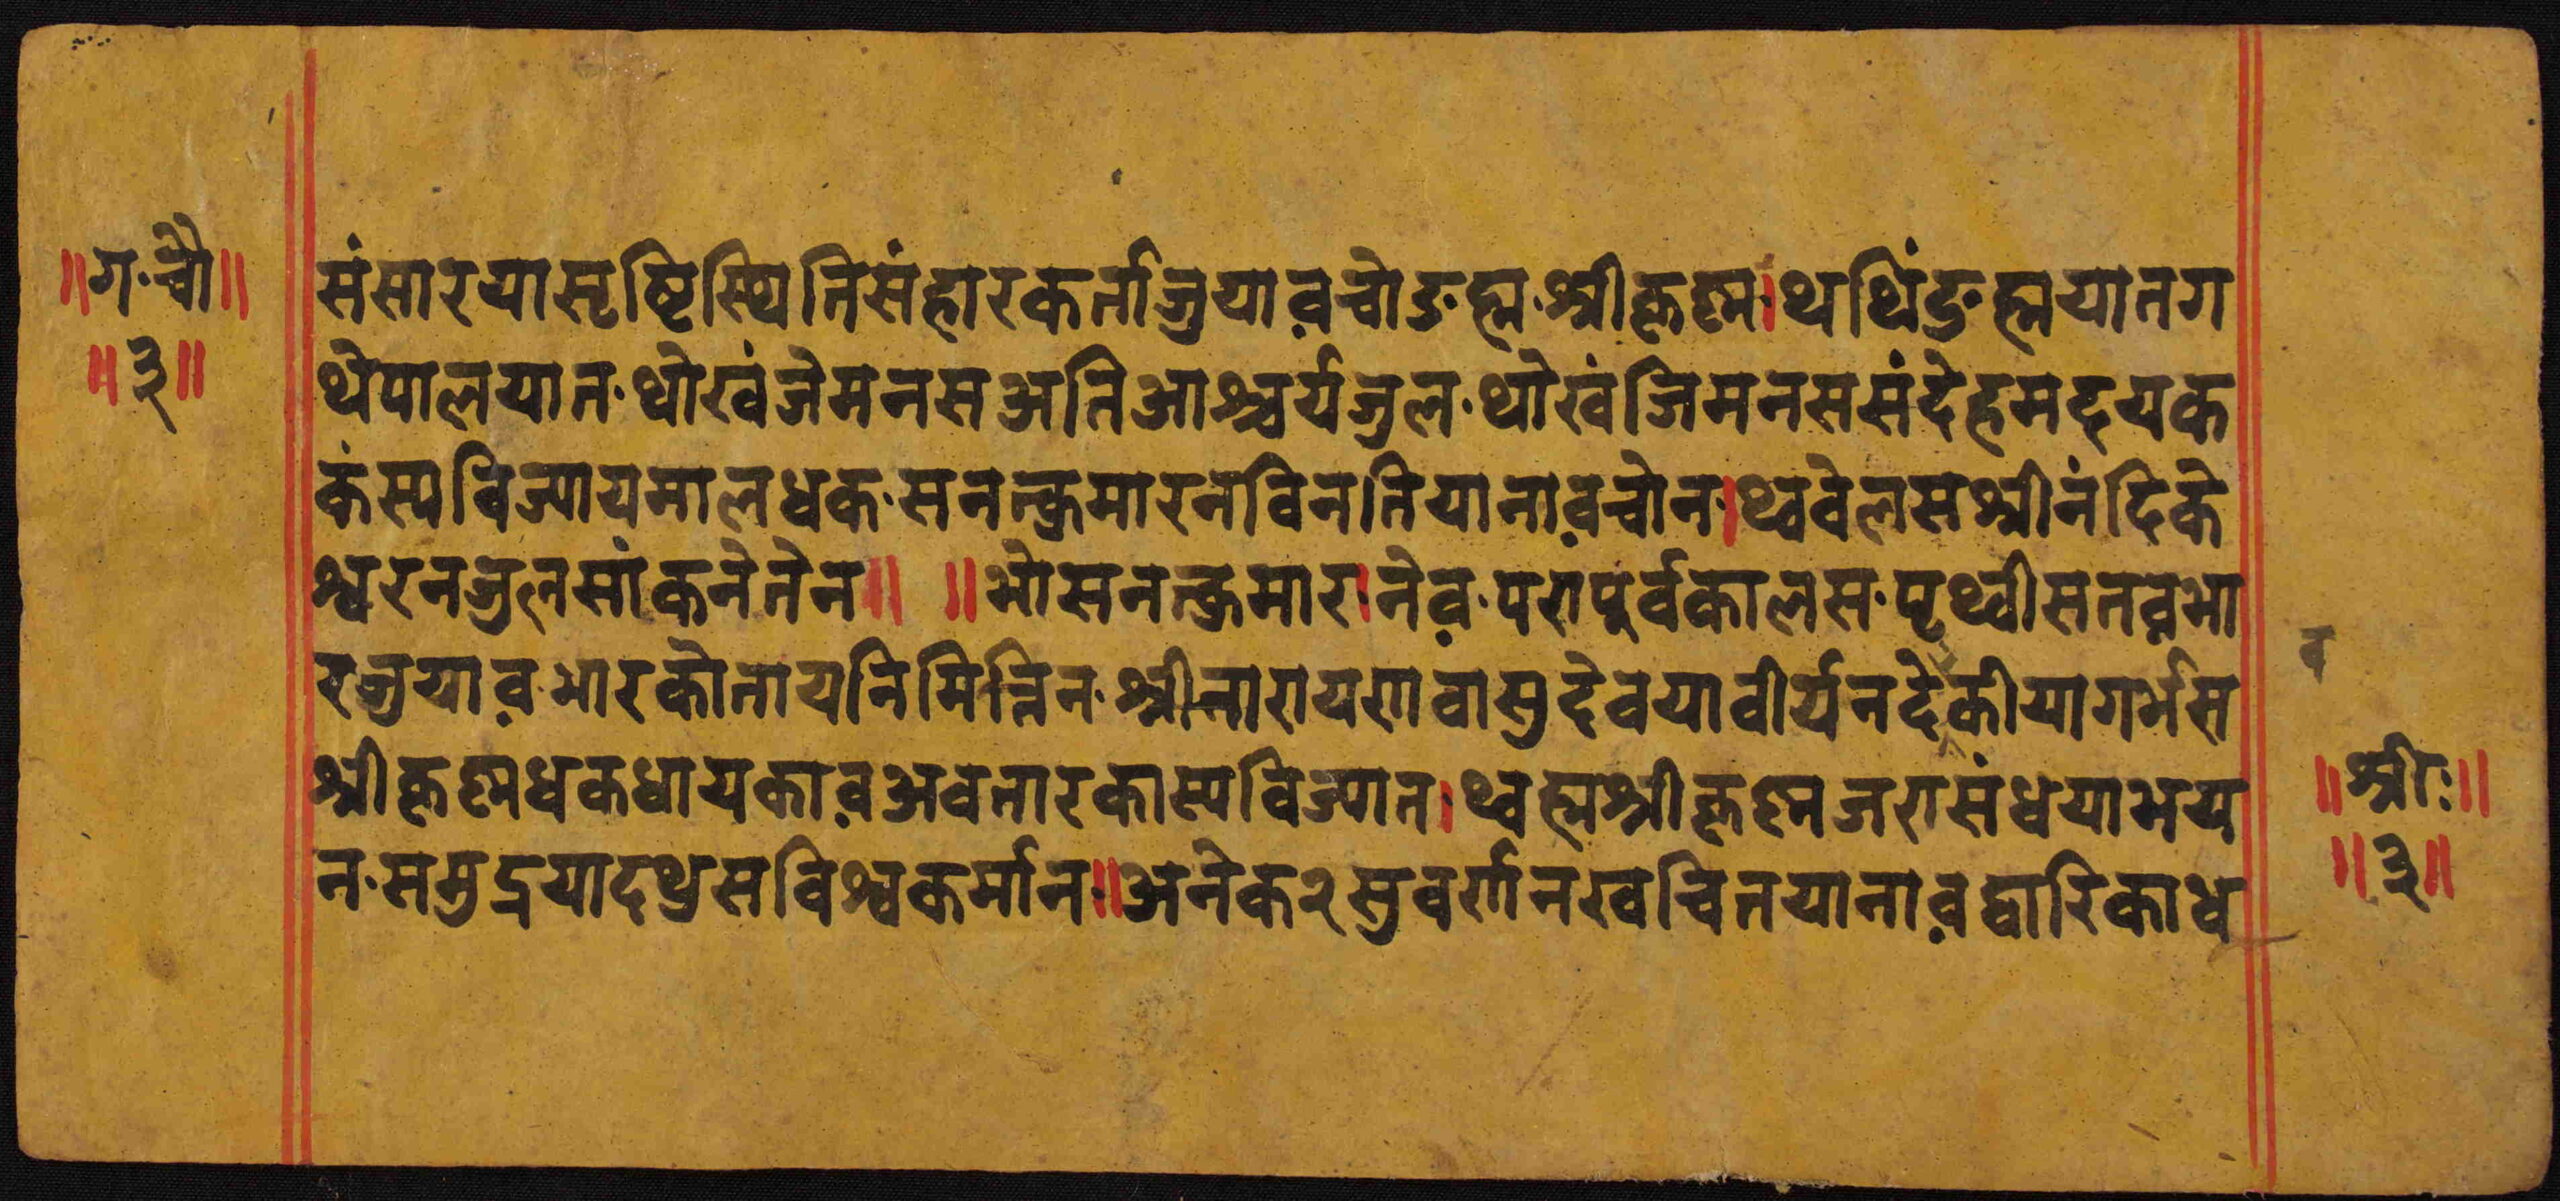 ॥ग·चौ॥
॥३॥
संसारयासृष्टिस्थितिसंहारकर्ताजुयाव़चोङह्म·श्रीकृष्ण।थथिंङह्मयातग
थेपालयात·थोखंजेमनसअतिआश्चर्यजुल·थोखंजिमनससंदेहमदयक
कंस्यविज्यायमालधक·सनत्कुमारनविनतियानाव़चोन।थ्ववेलसश्रीनंदिके
श्वरनजुलसांकनेतेन॥ ॥भोसनत्कुमार।नेव़·परापूर्वकालस·पृथ्वीसतव़भा
रजुयाव़·भारकोतायनिमित्तिन·श्रीनारायणवासुदेवयावीर्यनदेकीयागर्भस
व
श्रीकृष्णधकधायकाव़अवतारकास्यविज्यात।थ्वह्मश्रीकृष्णजरासंधयाभय
न·समुद्रयादथुसविश्वकर्मान॥अनेक२सुवर्णनखचितयानाव़द्वारिकाध
॥श्रीः॥
॥३॥